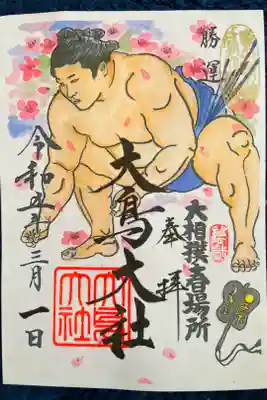 勝運
大相撲春場所
奉拝
大鳥大社
大鳥
大社
令和五年三月一日